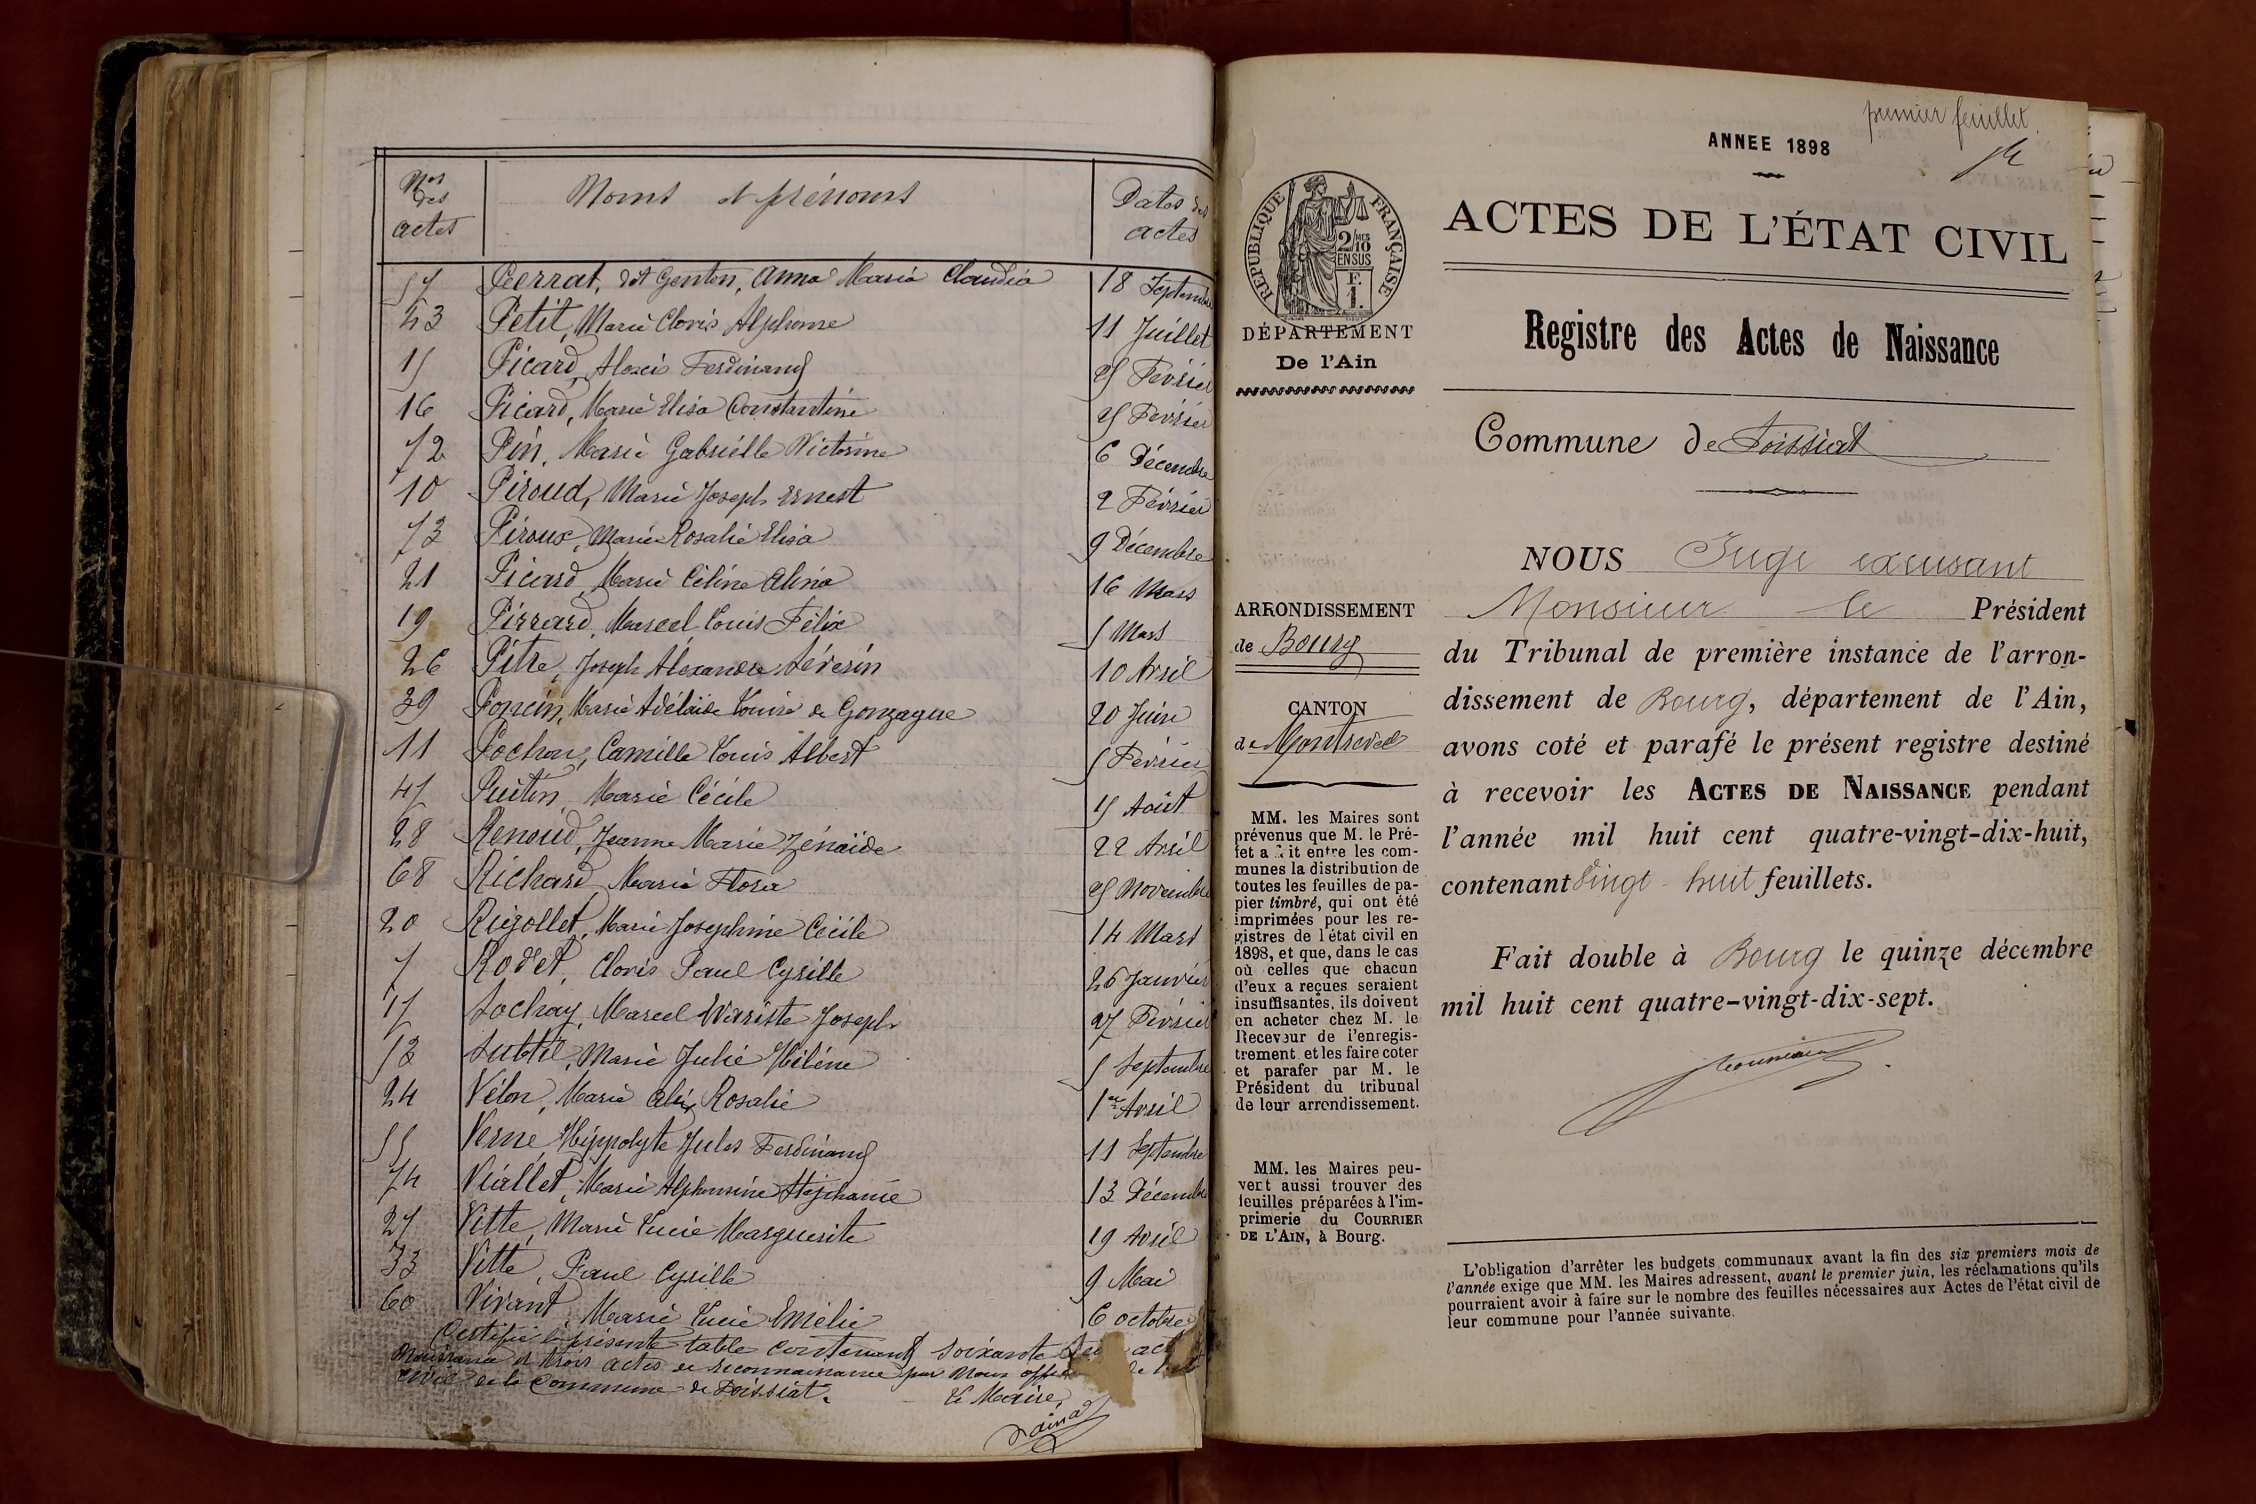 Nos des actes
Noms et prénoms
Dates des actes
57 Perrat, dit Genton, Anna Maria Claudia 18 Septembre
43 Petit, Marie Clovis Alphonse 11 Juillet
15 Picard, Alexis Ferdinand 25 Février
16 Picard, Marie Elisa Constantine 25 Février
72 Pin, Marie Gabrielle Victorine 6 Décembre
10 Piroud, Marie Joseph Ernest 2 Février
73 Piroux, Marie Rosalie Elisa 9 Décembre
21 Picard, Marie Céline Alina 16 Mars
19 Pirrard, Marcel Louis Félix 5 Mars
26 Pitre, Joseph Alexandre Séverin 10 Avril
39 Poncin, Marie Adélaïde Louise de Gonzague 20 Juin
11 Pochon, Camille Louis Albert 5 Février
47 Putin, Marie Cécile 15 Août
28 Renoud, Jeanne Marie Zénaïde 22 Avril
68 Richard, Maria Flora 25 Novembre
20 Rigollet, Marie Joséphine Cécile 14 Mars
7 Rodet, Clovis Paul Cyrille 26 Janvier
17 Sochay, Marcel Variste Joseph 27 Février
52 Subtil, Marie Julie Hélène 5 Septembre
24 Vélon, Marie Alix Rosalie 1er Avril
55 Verne Hippolyte Jules Ferdinand 11 Septembre
74 Viallet, Marie Alphonsine Stéphanie 13 Décembre
27 Vitte, Marie Lucie Marguerite 19 Avril
33 Vitte, Paul Cyrille 9 Mai
60 Vivant, Marie Lucie Emélie 6 octobre
Certifié la présente table contenant soixante
naissance et trois actes de reconnaissance par nous
civil de la commune de Foissiat.
Le Maire,
premier feuillet.
ANNEE 1898
ACTES DE L'ÉTAT CIVIL
Registre des Actes de Naissance
Commune de Foissiat
NOUS Juge excusant
Monsieur le Président
du Tribunal de première instance de l'arron-
dissement de Bourg, département de l'Ain,
avons coté et parafé le présent registre destiné
à recevoir les ACTES DE NAISSANCE pendant
l'année mil huit cent quatre-vingt-dix-huit,
contenant vingt-huit feuillets.
Fait double à Bourg le quinze décembre
mil huit cent quatre-vingt-dix-sept.
L'obligation d'arrêter les budgets communaux avant la fin des six premiers mois de
l'année exige que MM. les Maires adressent, avant le premier juin, les réclamations qu'ils
pourraient avoir à faire sur le nombre des feuilles nécessaires aux Actes de l'état civil de
leur commune pour l'année suivante.
RÉPUBLIQUE FRANÇAISE
2/10
EN SUS
F.
1.
DÉPARTEMENT
De l'Ain
ARRONDISSEMENT
de Bourg
CANTON
de Montrevel
MM. les Maires sont
prévenus que M. le Pré-
fet a fait entre les com-
munes la distribution de
toutes les feuilles de pa-
pier timbré, qui ont été
imprimées pour les re-
gistres de l'état civil en
1898, et que, dans le cas
où celles que chacun
d'eux a reçues seraient
insuffisantes, ils doivent
en acheter chez M. le
Receveur de l'enregis-
trement et les faire coter
et parafer par M. le
Président du tribunal
de leur arrondissement.
MM. les Maires peu-
vent aussi trouver des
feuilles préparées à l'im-
primerie du COURRIER
DE L'AIN, à Bourg.